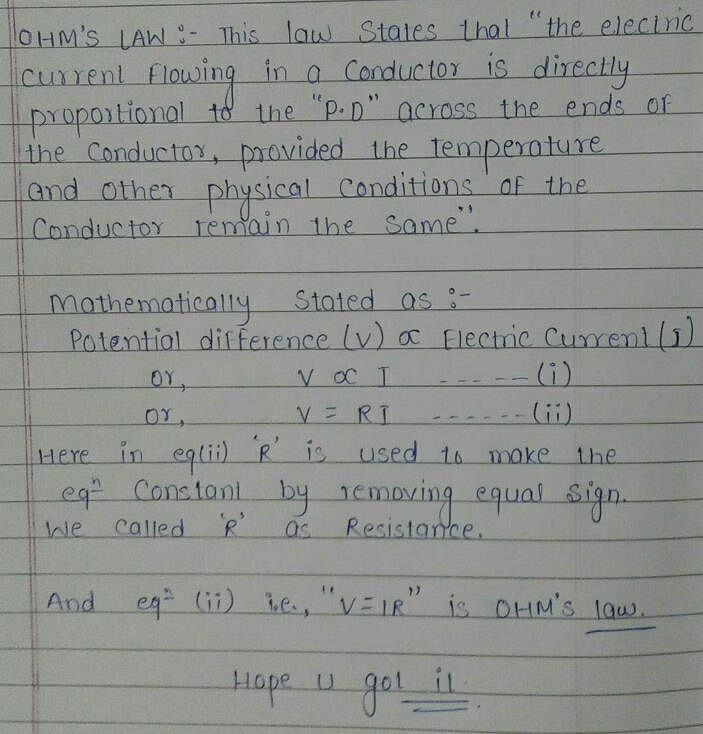 OHM'S LAW :- This law States that "the electric
current flowing in a Conductor is directly
proportional to the "P.D" across the ends of
the Conductor, provided the temperature
and other physical Conditions of the
Conductor remain the same".
Mathematically Stated as :-
Potential difference (V) ∝ Electric Current (I)
or, V ∝ I ----- (i)
or, V = RI ------ (ii)
Here in eq(ii) 'R' is used to make the
eqⁿ Constant by removing equal sign.
We Called 'R' as Resistance.
And eqⁿ (ii) i.e., "V=IR" is OHM'S law.
Hope u got it.